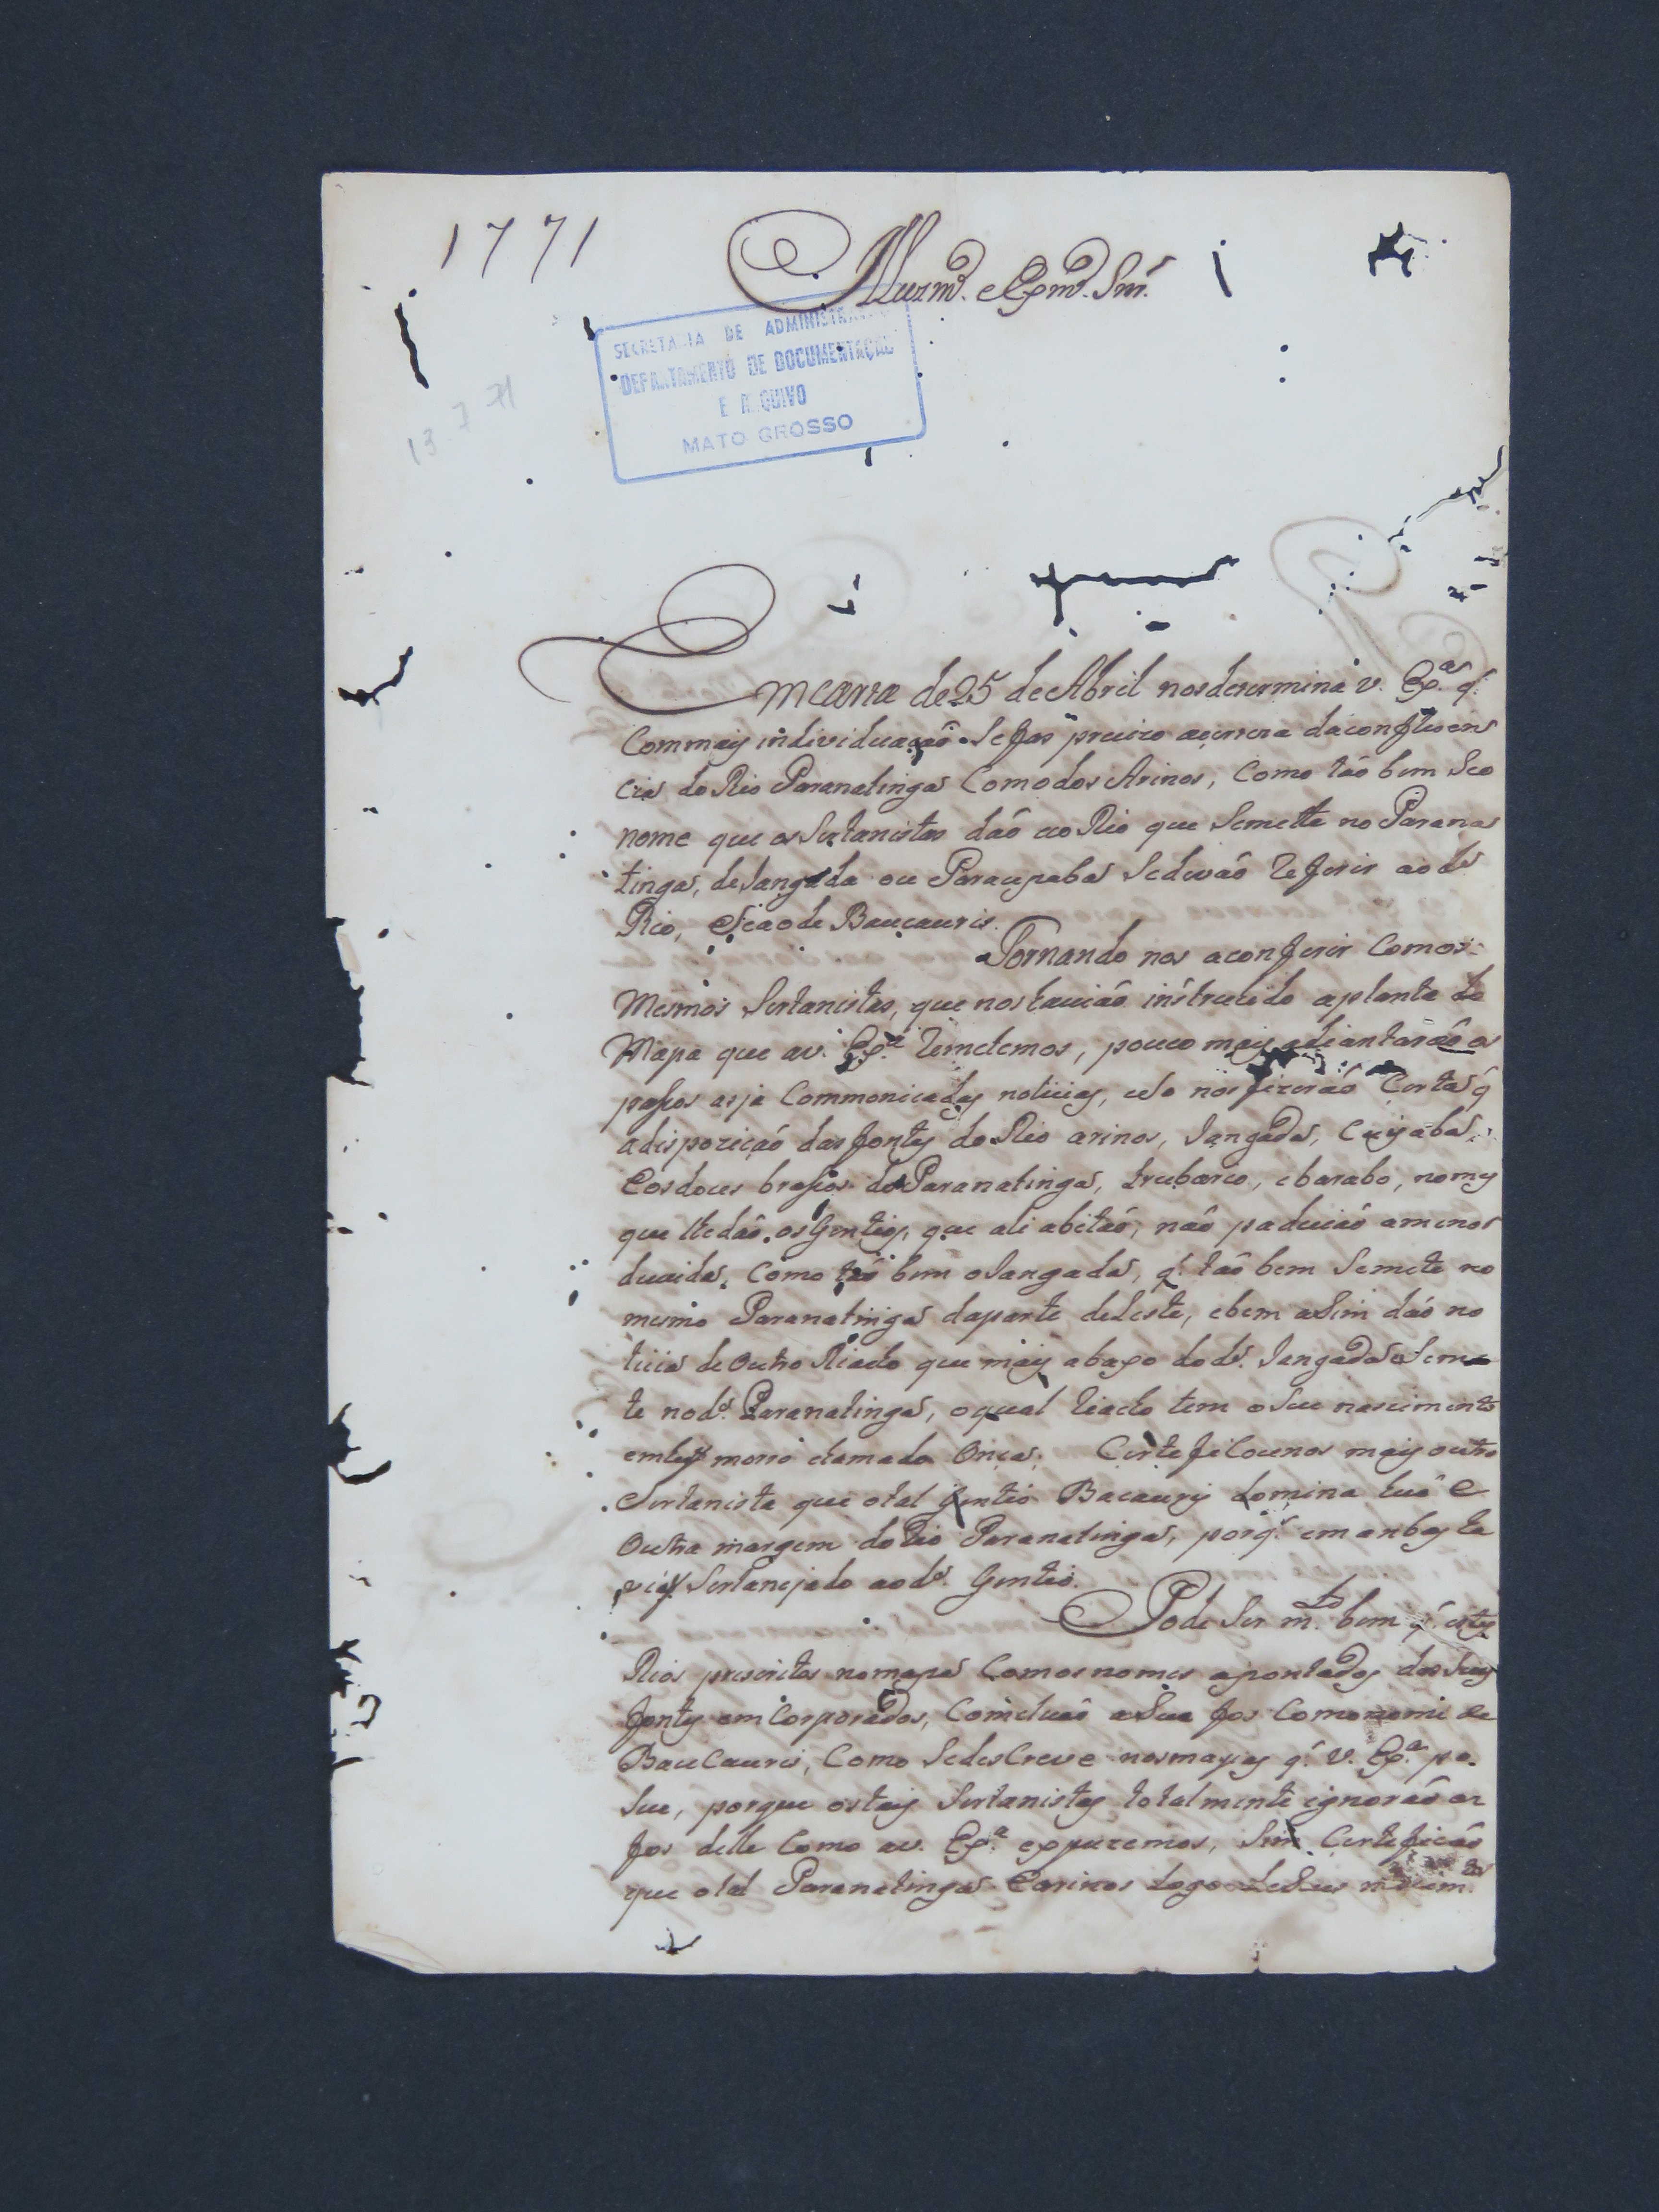 1771
Illuzmo. e Exmo. Snr.
SECRETARIA DE ADMINISTRA
DEPARTAMENTO DE DOCUMENTAÇÃO
E ARQUIVO
MATO GROSSO
13 7 71
Em carta de 25 de Abril nos determina v. Exa. q.
Com mais individuação se fas precizo acerca da confluen
cia do Rio Paranatinga Com o dos Arinos, Como tão bem Se o
nome que os Sertanistas dão ao Rio que Semette no Parana
tinga, de Jangada ou Paraupaba Se devão Referir ao do.
Rio, Se ao de Baucauris.
Tornando nos a conferir Com os
Mesmos Sertanistas, que nos havião instruhido a planta do
Mapa que a v. Exa. Remetemos, pouco mais adiantarão os
passos as já Commonicadas noticias, e so nos fizerão Certas q
a dispozição das fontes do Rio arinos, Jangada, Cuyaba,
E os doces brassos do Paranatinga, , ebarabo, nomes
que lhe dão os Gentios, que ali abitão; não padecião a menor
duvida, Como tão bem o Jangada, q. tão bem Semete no
mesmo Paranatinga da parte de Leste, e bem assim dão no
ticia de Outro Riacho que mais abaxo do do. Jangada Seme
te no do. Paranatinga, o qual Riacho tem o Seu nascimento
em hum morro chamado Onça; Certeficounos mais outro
Sertanista que o tal Gentio Bacaurys domina huã e
Outra margem do Rio Paranatinga, porq. em anbas te
Sertanejado ao do. Gentio.
Pode Ser mto. bem q. estes
Rios prescritos no mapa Com os nomes apontados das Suas
fontes em Corporados, Comcluão a Sua fos Com o nome de
BauCauris, Como Se desCreve nos mapas q. V. Exa. po-
sue, porque os tais Sertanistas totalmente ignorão a
fos delle Como a v. Exa. expuzemos, Sim Certeficão
que o tal Paranatinga E arinos Logo de Seus nacimtos